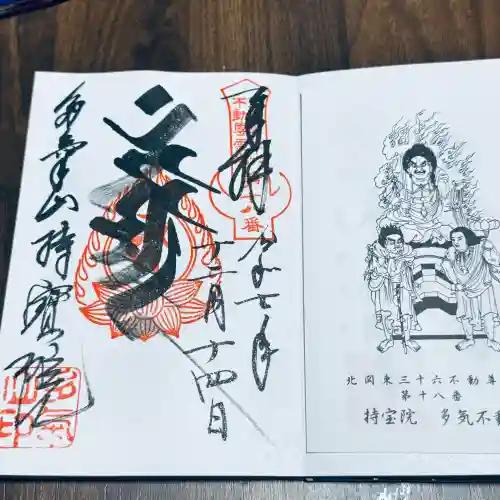 奉拝
令和七年
十二月十四日
多氣山持寳院
不動尊霊
番
北関東三十六不動尊
第十八番
持宝院 多気不動